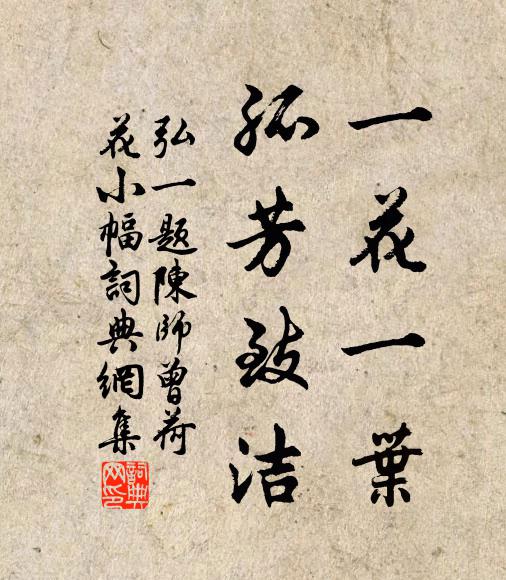 一花一葉
孤芳致洁
弘一題陳師曾荷
花小幅詞典網集
詞典网印